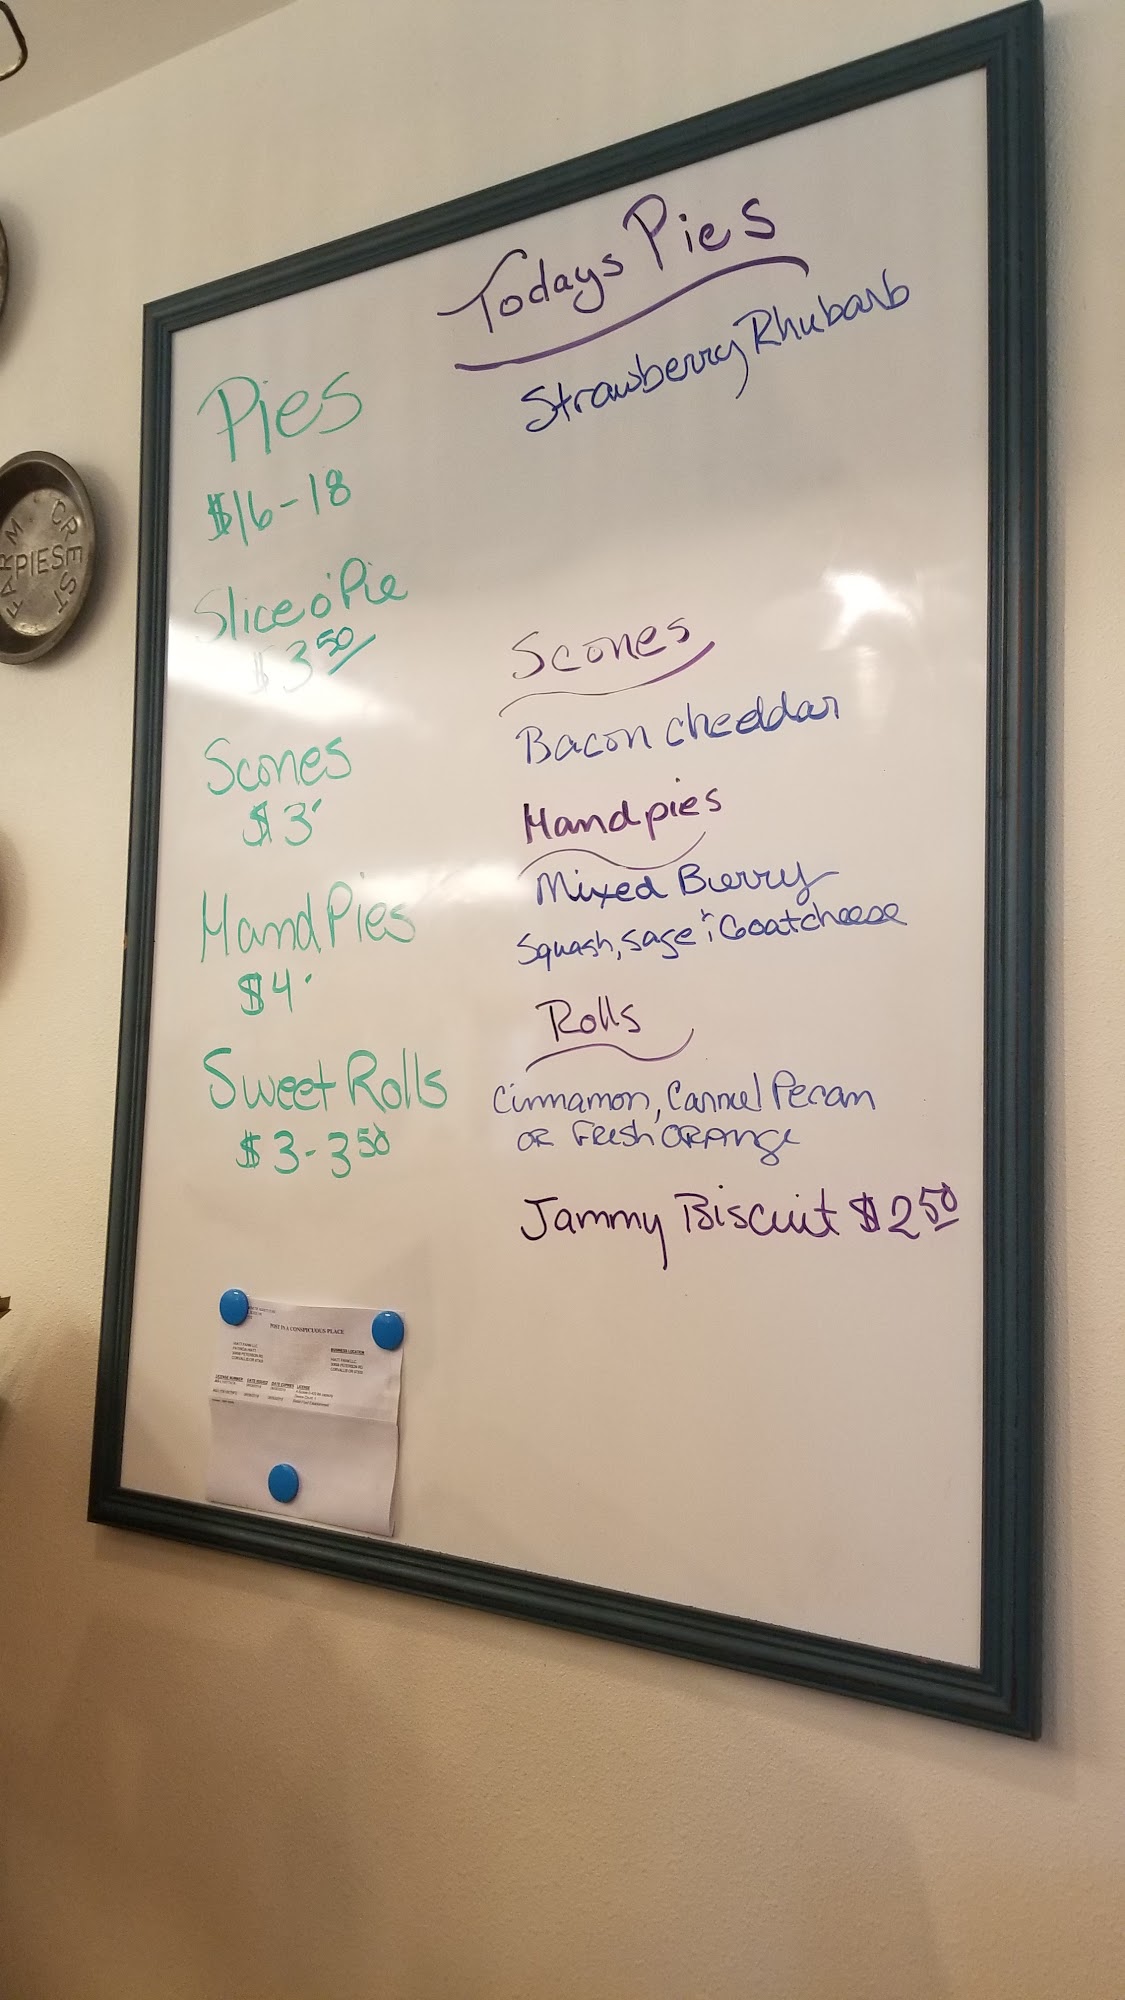 Todays Pies
Strawberry Rhubarb
Pies
$16-18
Slice o' Pie
$3 50
Scones
$3
Hand Pies
$4
Sweet Rolls
$3-3 50
Scones
Bacon cheddar
Handpies
Mixed Berry
Squash, sage & Goatcheese
Rolls
Cinnamon, Carmel Pecan
OR FResh ORANge
Jammy Biscuit $2 50
FARM CREST
PIES
POST IN A CONSPICUOUS PLACE
BUSINESS LOCATION
LICENSE NUMBER DATE ISSUED DATE EXPIRES LICENSE